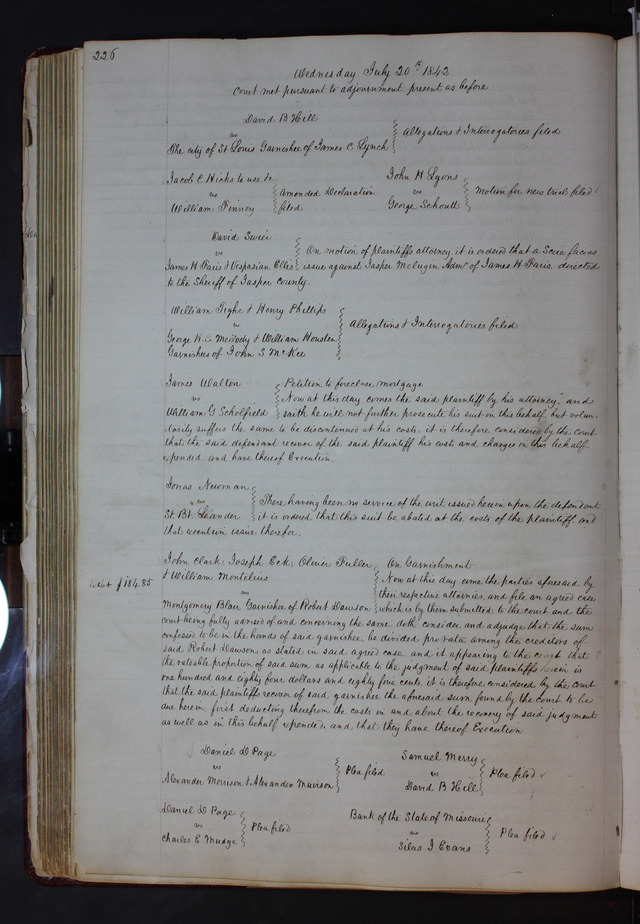 226
Wednesday July 20th 1842
Court met pursuant to adjournment, present as before
David B Hill
vs
The city of St Louis Garnishee of James C Lynch
Allegations & Interrogatories filed
Jacob C Hicks to use &c
vs
William Finney
Amended Declaration
filed
John H Lyons
vs
George Schoutt
Motion for new trial filed
David
vs
James H Paris & Vespasian Ellis
On motion of plaintiffs attorney, it is ordered that a Scire facias
issue against Jasper Admr of James H Paris, directed
to the Sheriff of Jasper County.
William Tighe & Henry Phillips
vs
George H. & William Housden
Garnishees of John S McKee
Allegations & Interrogatories filed
James Walton
vs
William G Scholfield
Petition to foreclose mortgage
Now at this day comes the said plaintiff by his attorney and
saith he will not further prosecute his suit on this behalf, but volun-
tarily suffers the same to be discontinued at his costs, it is therefore considered by the court
that the said defendant recover of the said plaintiff his costs and charges in this behalf
expended and have thereof Execution.
Jonas Newman
vs
St. Bt. Leander
There having been no service of the writ issued herein upon the defendant
it is ordered that this suit be abated at the costs of the plaintiff and
that execution issue therefor.
John Clark, Joseph Eck, Oliver Fuller
& William Montelius
vs
Montgomery Blair Garnishee of Robert Dawson
On Garnishment
Debt $184.85
Now at this day come the parties aforesaid by
their respective attornies, and file an agreed case
which is by them submitted to the court and the
court being fully advised of and concerning the same doth consider and adjudge that the sum
confessed to be in the hands of said garnishee be divided pro rata among the creditors of
said Robert Dawson as stated in said agreed case and it appearing to the court that
the rateable proportion of said sum as applicable to the judgment of said plaintiffs herein is
one hundred and eighty four dollars and eighty five cents it is therefore considered by the court
that the said plaintiffs recover of said garnishee the aforesaid sum found by the court to be
due herein, first deducting therefrom the costs in and about the recovery of said judgment
as well as in this behalf expended, and that they have thereof Execution
Daniel D Page
vs
Alexander Morrison & Alexander Muirson
Plea filed
Samuel Merry
vs
David B Hill
Plea filed
Daniel D Page
vs
Charles E Mudge
Plea filed
Bank of the State of Missouri
vs
Silas J Evans
Plea filed